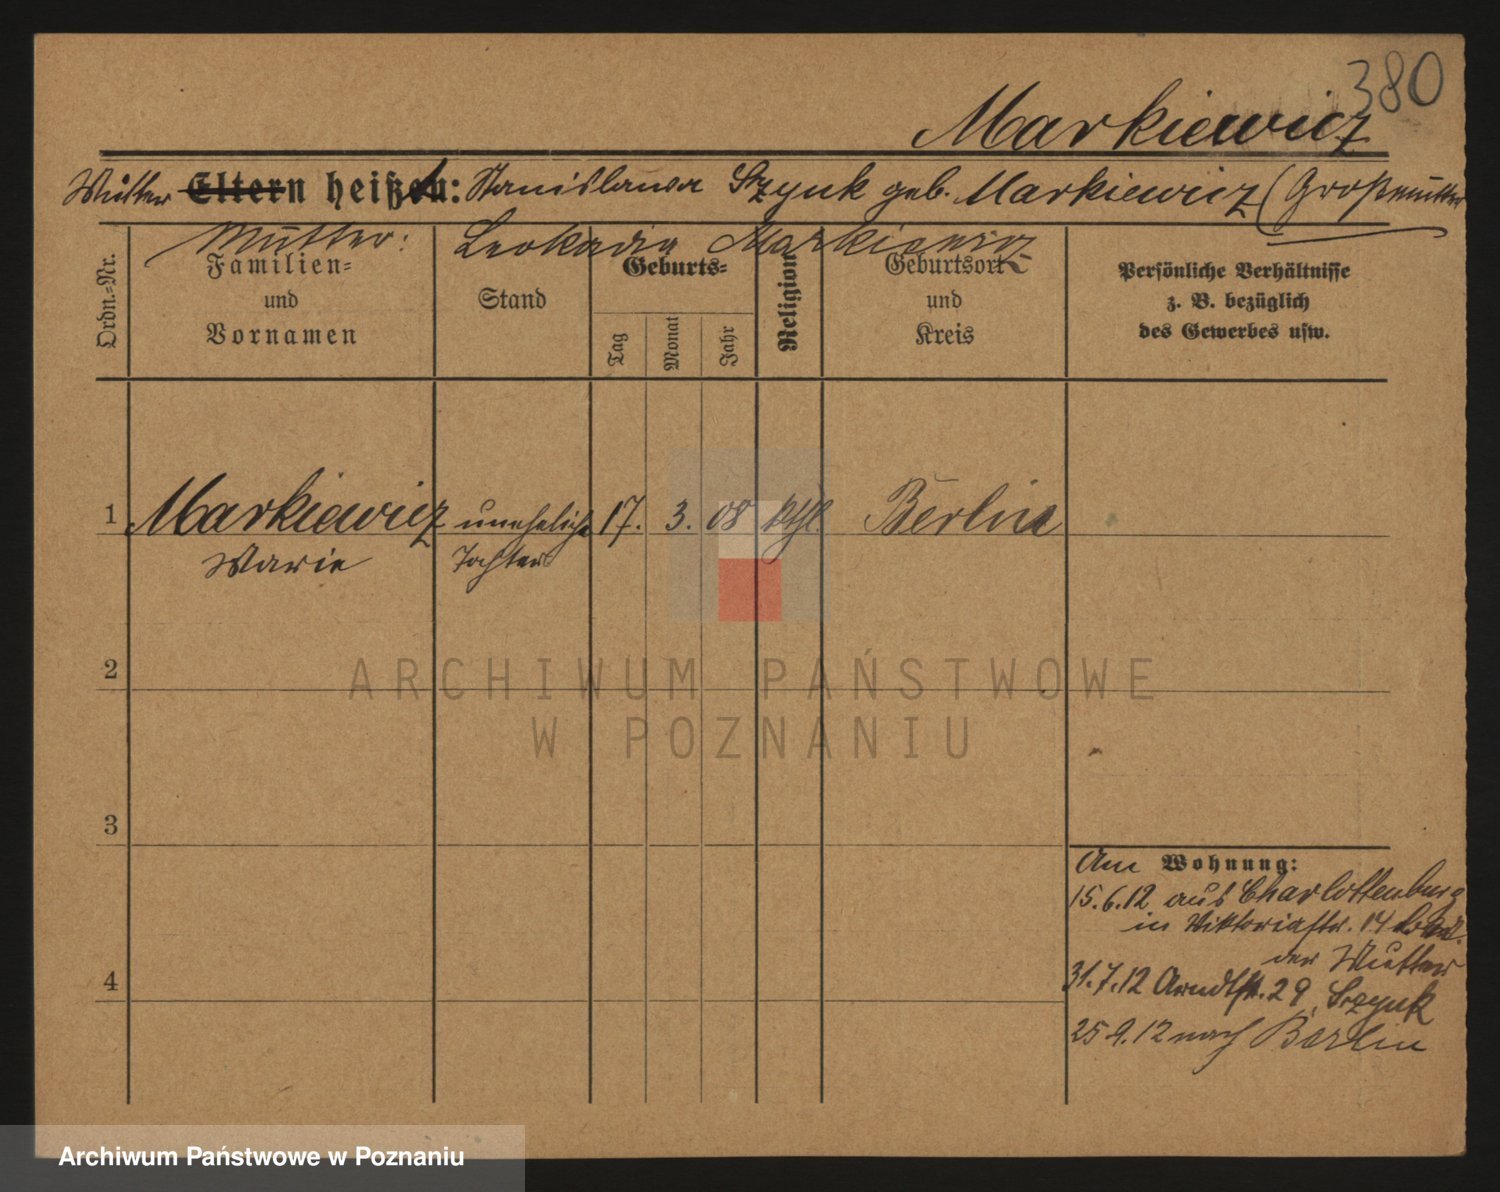 380
Markiewicz
Mutter Eltern heißen: Stanislawa Szynk geb. Markiewicz (Großmutter
Mutter: Leokadia Markiewicz
Ordn.=Nr.
Familien=
und
Vornamen
Stand
Geburts=
Tag
Monat
Jahr
Religion
Geburtsort
und
Kreis
Persönliche Verhältnisse
z. B. bezüglich
des Gewerbes usw.
1 Markiewicz uneheliche 17. 3. 08 kthl. Berlin
Marie Tochter
2
3
4
Am Wohnung:
15.6.12 aus Charlottenburg
in Viktoriastr. 14
der Mutter
31.7.12 Arndtstr. 29, Szynk
25.9.12 nach Berlin
ARCHIWUM PAŃSTWOWE
W POZNANIU
Archiwum Państwowe w Poznaniu